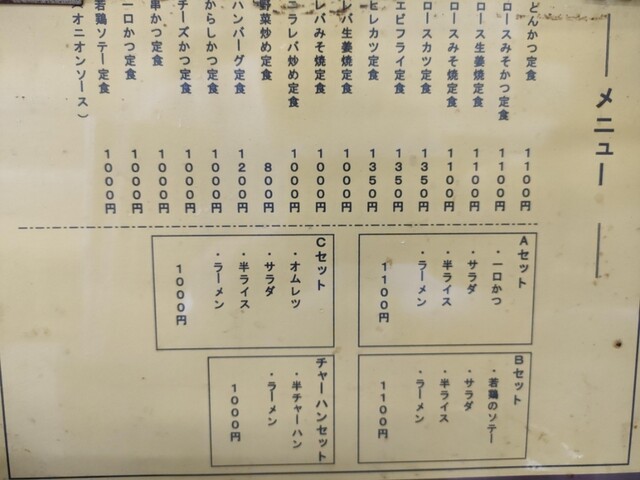 メニュー
とんかつ定食 1100円
ロースみそかつ定食 1100円
ロース生姜焼定食 1100円
ロースみそ焼定食 1100円
ロースカツ定食 1350円
エビフライ定食 1350円
ヒレカツ定食 1350円
レバ生姜焼定食 1000円
レバみそ焼定食 1000円
ニラレバ炒め定食 1000円
野菜炒め定食 800円
ハンバーグ定食 1200円
からしかつ定食 1000円
チーズかつ定食 1000円
串かつ定食 1000円
一口かつ定食 1000円
若鶏ソテー定食 1000円
(オニオンソース)
Aセット
・一口かつ
・サラダ
・半ライス
・ラーメン
1100円
Bセット
・若鶏のソテー
・サラダ
・半ライス
・ラーメン
1100円
Cセット
・オムレツ
・サラダ
・半ライス
・ラーメン
1000円
チャーハンセット
・半チャーハン
・ラーメン
1000円